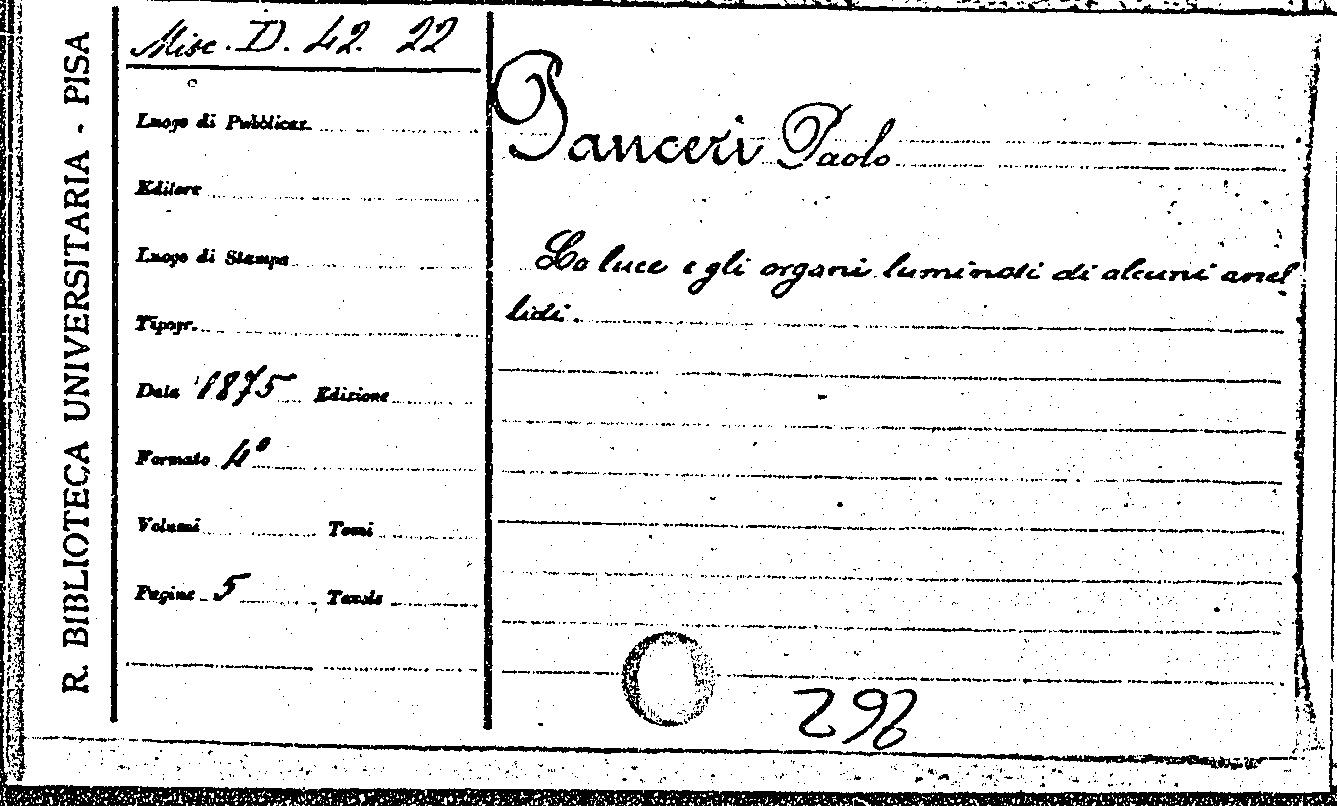 R. BIBLIOTECA UNIVERSITARIA - PISA
Misc. D. 42. 22
Luogo di Pubblicaz.
Editore
Luogo di Stampa
Tipogr.
Data 1875 Edizione
Formato 4°
Volumi Tomi
Pagine 5 Tavole
Panceri Paolo
La luce e gli organi luminosi di alcuni anel
lidi.
292